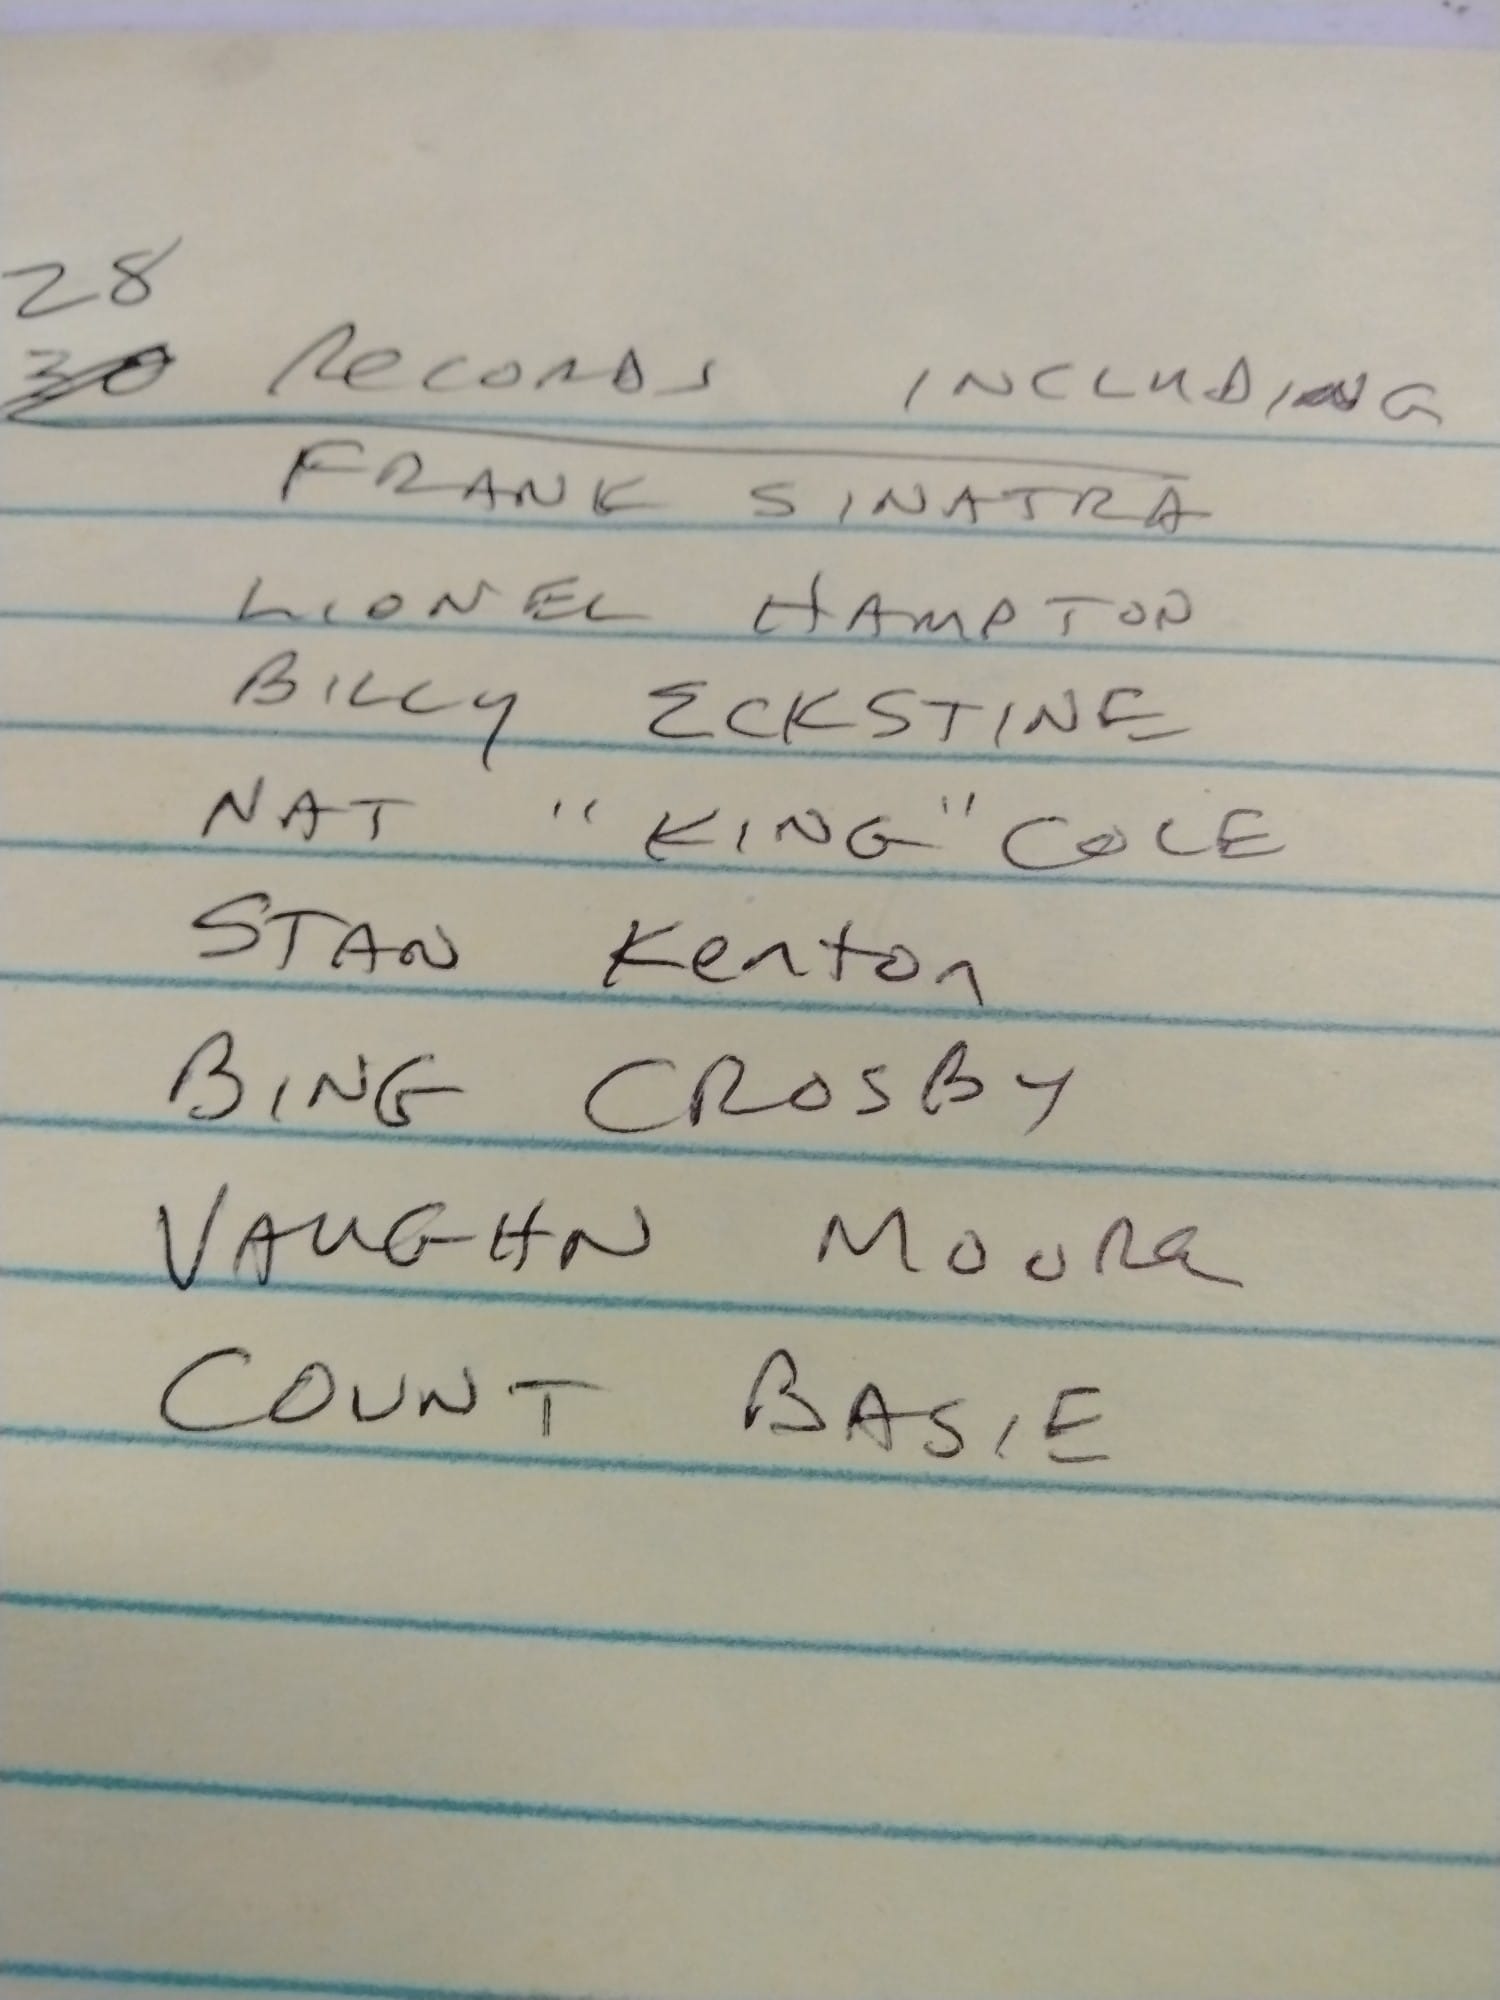 28
30 Records INCLUDING
FRANK SINATRA
LIONEL HAMPTON
BILLY ECKSTINE
NAT "KING" COLE
STAN Kenton
BING CROSBY
VAUGHN MOORe
COUNT BASIE